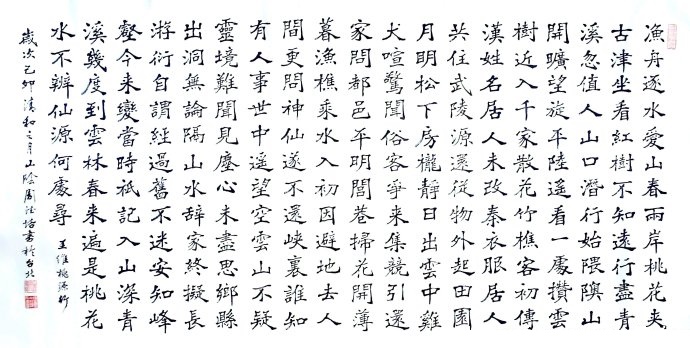 漁舟逐水愛山春兩岸桃花夾
古津坐看紅樹不知遠行盡青
溪忽值人山口潛行始隈隩山
開曠望旋平陸遙看一處攢雲
樹近入千家散花竹樵客初傳
漢姓名居人未改秦衣服居人
共住武陵源還從物外起田園
月明松下房櫳靜日出雲中雞
犬喧驚聞俗客爭來集競引還
家問都邑平明閭巷掃花開薄
暮漁樵乘水入初因避地去人
間更問神仙遂不還峽裏誰知
有人事世中遙望空雲山不疑
靈境難聞見塵心未盡思鄉縣
出洞無論隔山水辭家終擬長
游衍自謂經過舊不迷安知峰
壑今來變當時祇記入山深青
溪幾度到雲林春來遍是桃花
水不辨仙源何處尋
王維桃源行
歲次己卯清和之月山陰周書於台北